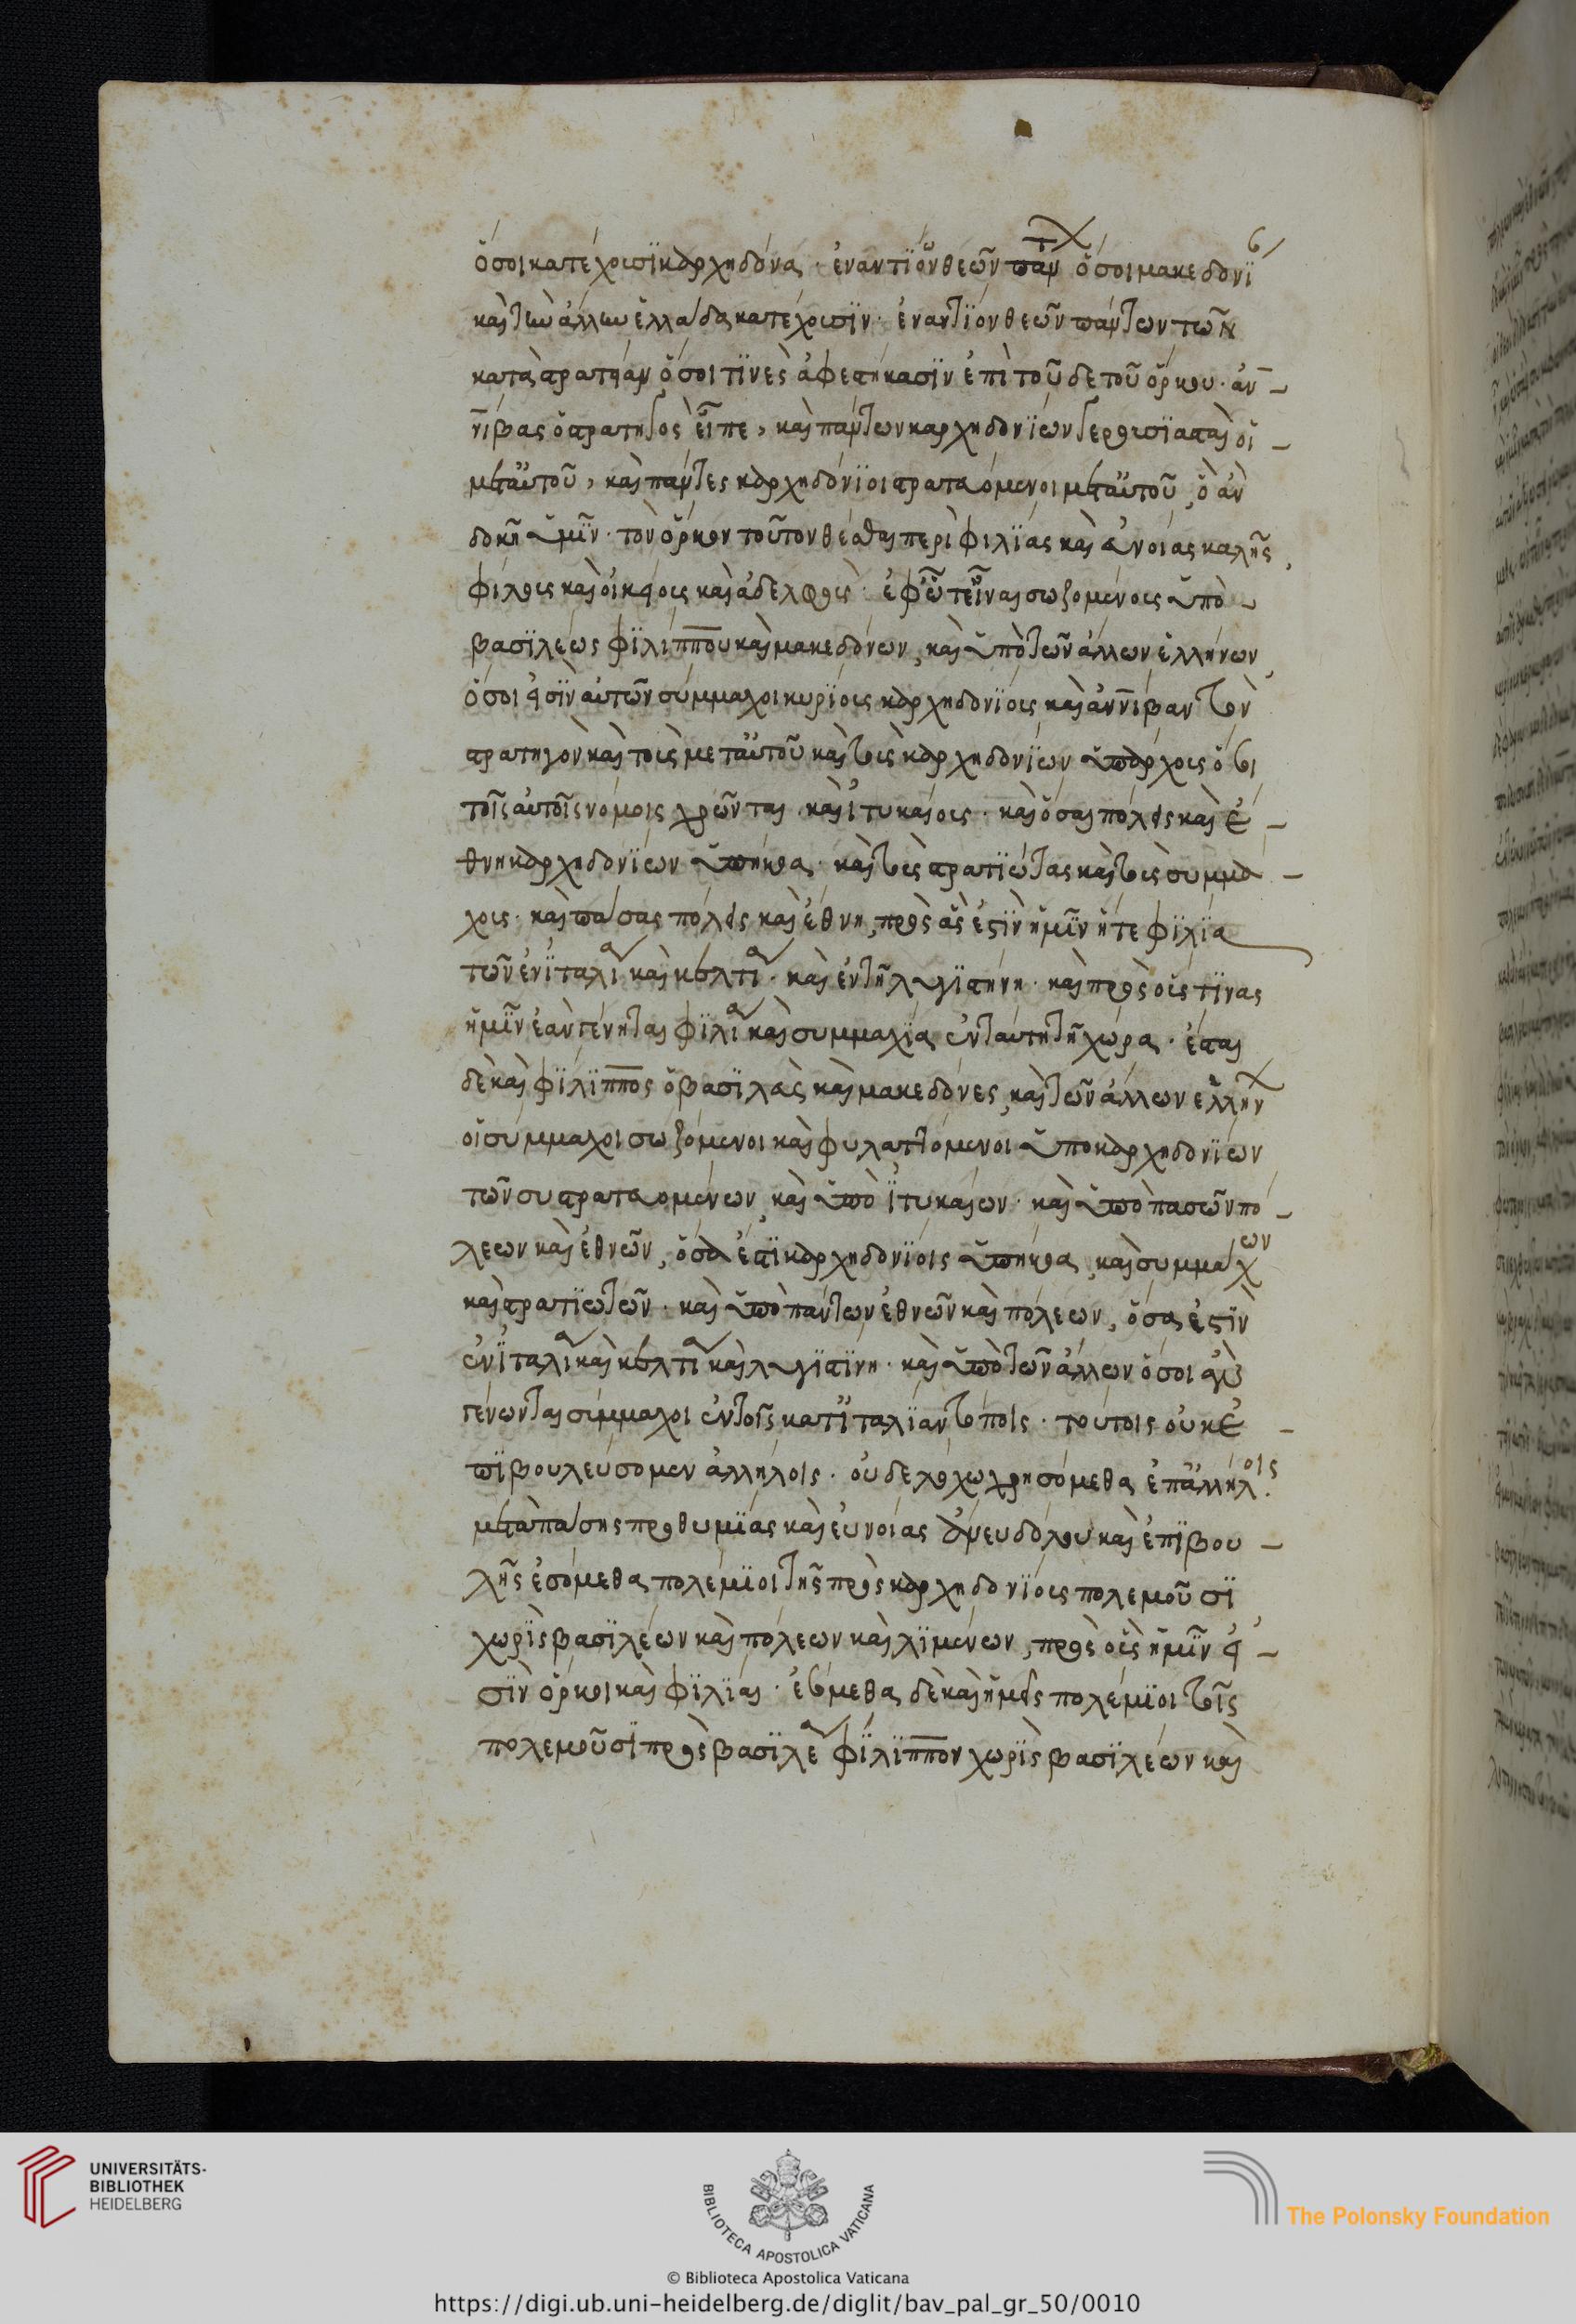 ὅσοι κατέχουσι καρχηδόνα· ἐναντίον θεῶν πάντων ὅσοι μακεδονί
καὶ τὴν ἄλλην ἑλλάδα κατέχουσιν· ἐναντίον θεῶν πάντων τῶν
κατὰ στρατείαν ὅσοι τινὲς ἀφεστήκασιν ἐπὶ τοῦδε τοῦ ὅρκου· ἀν-
νίβας ὁ στρατηγὸς εἶπε, καὶ πάντων καρχηδονίων γερουσιασταὶ οἱ
μετ' αὐτοῦ, καὶ πάντες καρχηδόνιοι στρατευόμενοι μετ' αὐτοῦ, ὃ ἂν
δοκῇ ὑμῖν· τὸν ὅρκον τοῦτον θέσθαι περὶ φιλίας καὶ εὐνοίας καλῆς,
φίλους καὶ οἰκείους καὶ ἀδελφούς· ἐφ' ᾧ τ' εἶναι σωζομένους ὑπὸ
βασιλέως φιλίππου καὶ μακεδόνων, καὶ ὑπὸ τῶν ἄλλων ἑλλήνων,
ὅσοι εἰσὶν αὐτῶν σύμμαχοι κυρίους καρχηδονίους καὶ ἀννίβαν τὸν
στρατηγὸν καὶ τοὺς μετ' αὐτοῦ καὶ τοὺς καρχηδονίων ὑπάρχους ὅσοι
τοῖς αὐτοῖς νόμοις χρῶνται καὶ ἰτυκαίους· καὶ ὅσαι πόλεις καὶ ἔ-
θνη καρχηδονίων ὑπήκοα· καὶ τοὺς στρατιώτας καὶ τοὺς συμμά-
χους· καὶ πάσας πόλεις καὶ ἔθνη, πρὸς ἃς ἐστὶν ἡμῖν ἥ τε φιλία
τῶν ἐν ἰταλία καὶ κελτία· καὶ ἐν τῇ λυγιστήνη· καὶ πρὸς οὕς τινας
ἡμῖν ἐὰν γένηται φιλία καὶ συμμαχία ἐν ταύτη τῇ χώρα· ἔσται
δὲ καὶ φίλιππος ὁ βασιλεὺς καὶ μακεδόνες, καὶ τῶν ἄλλων ἑλλήνων
οἱ σύμμαχοι σωζόμενοι καὶ φυλαττόμενοι ὑπὸ καρχηδονίων
τῶν συστρατευομένων, καὶ ὑπὸ ἰτυκαίων· καὶ ὑπὸ πασῶν πό-
λεων καὶ ἐθνῶν, ὅσα ἐστὶ καρχηδονίοις ὑπήκοα, καὶ συμμάχων
καὶ στρατιωτῶν· καὶ ὑπὸ πάντων ἐθνῶν καὶ πόλεων, ὅσα ἐστὶν
ἐν ἰταλία καὶ κελτία καὶ λυγιστίνη· καὶ ὑπὸ τῶν ἄλλων ὅσοι ἂν
γένωνται σύμμαχοι ἐν τοῖς κατ' ἰταλίαν τόποις· τούτοις οὐκ ἐ-
πιβουλεύσομεν ἀλλήλοις· οὐδὲ λόχω χρησόμεθα ἐπ' ἀλλήλοις.
μετὰ πάσης προθυμίας καὶ εὐνοίας ἄνευ δόλου καὶ ἐπιβου-
λῆς ἐσόμεθα πολέμιοι τῆς πρὸς καρχηδονίους πολεμοῦσι
χωρὶς βασιλέων καὶ πόλεων καὶ λιμένων, πρὸς οὓς ἡμῖν εἰ-
σὶν ὅρκοι καὶ φιλίαι· ἐσόμεθα δὲ καὶ ἡμεῖς πολέμιοι τοῖς
πολεμοῦσι πρὸς βασιλέα φίλιππον χωρὶς βασιλέων καὶ
UNIVERSITÄTS-
BIBLIOTHEK
HEIDELBERG
BIBLIOTECA APOSTOLICA VATICANA
The Polonsky Foundation
© Biblioteca Apostolica Vaticana
https://digi.ub.uni-heidelberg.de/diglit/bav_pal_gr_50/0010